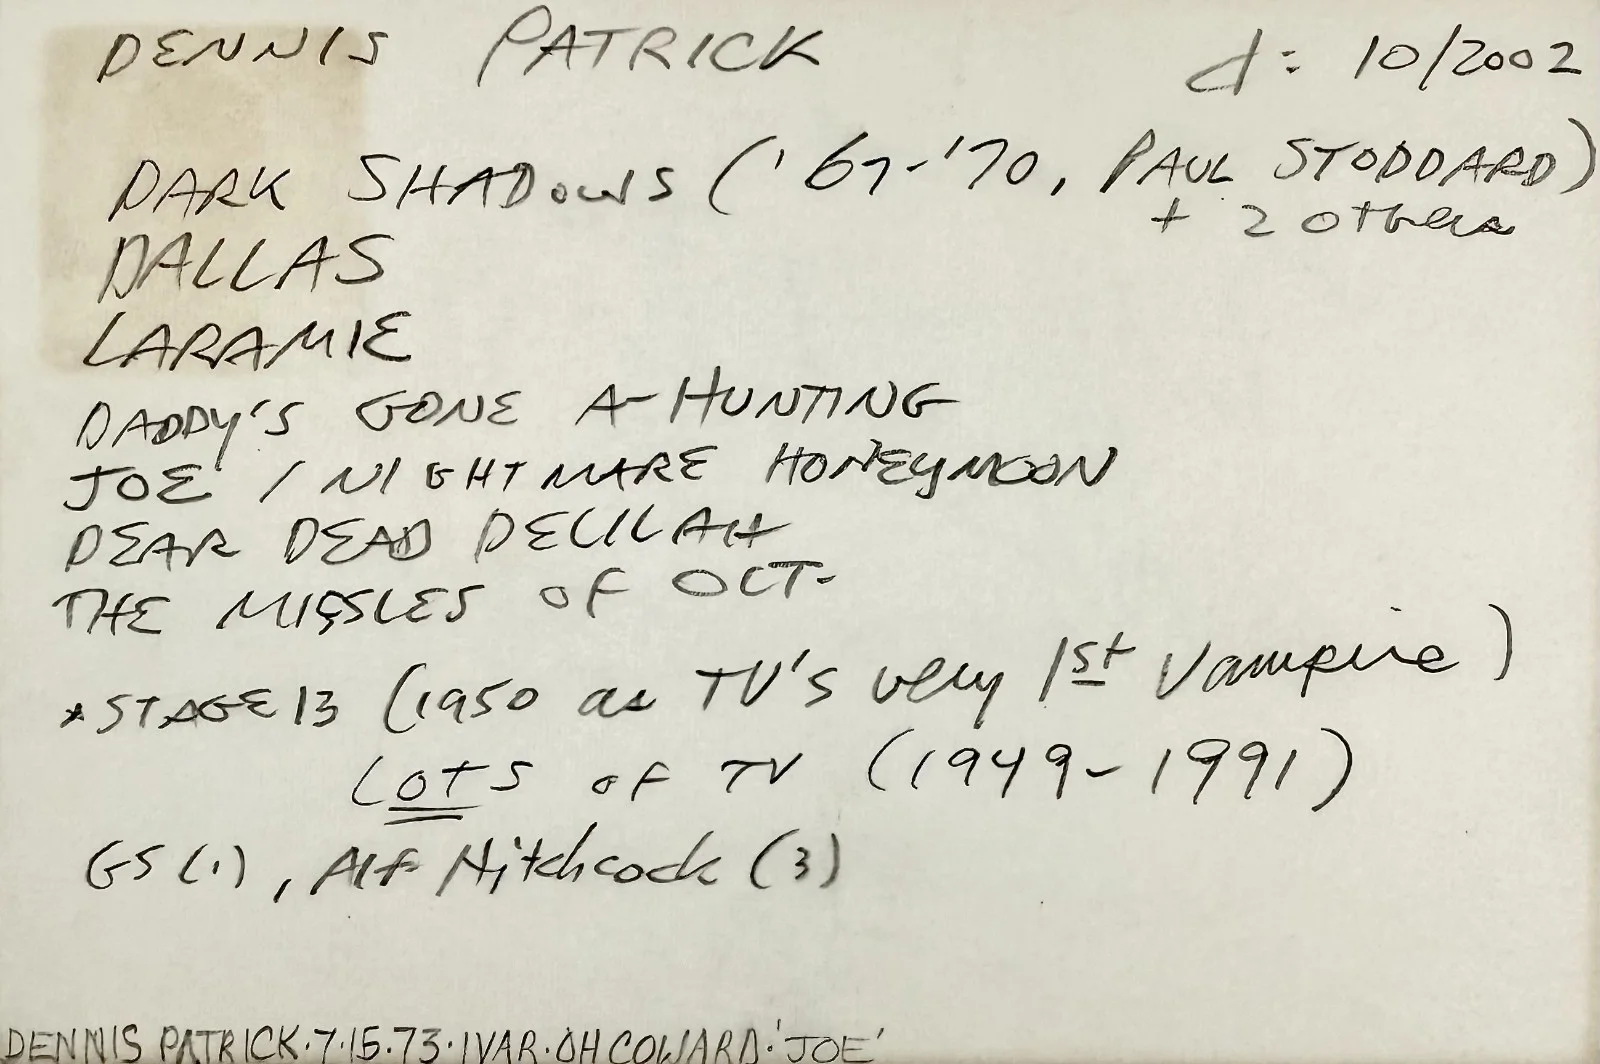 DENNIS PATRICK d: 10/2002
DARK SHADOWS ('67-'70, PAUL STODDARD)
+ 2 others
DALLAS
LARAMIE
DADDY'S GONE A-HUNTING
JOE / NIGHTMARE HONEYMOON
DEAR DEAD DELILAH
THE MISSLES OF OCT.
*STAGE 13 (1950 as TV'S very 1st Vampire)
LOTS OF TV (1949-1991)
GS (1), Alf Hitchcock (3)
DENNIS PATRICK·7·15·73·IVAR·OH COWARD·'JOE'